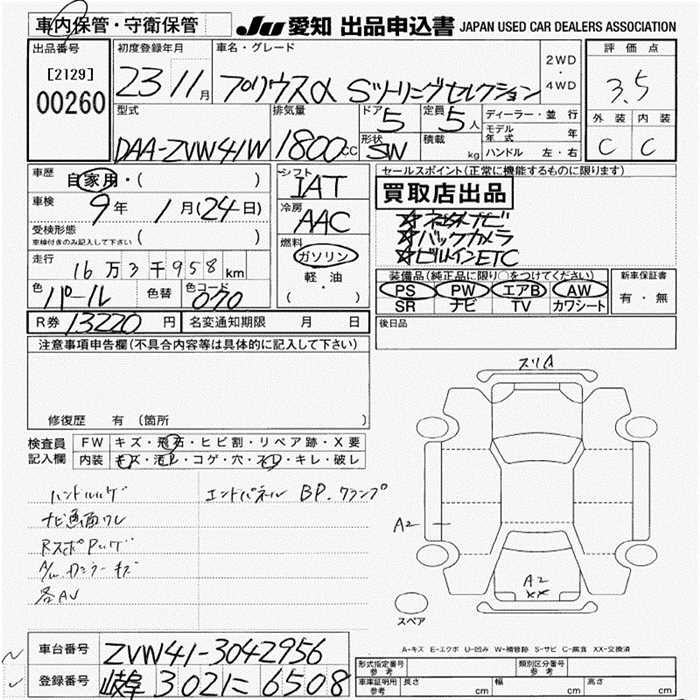 車内保管・守衛保管
JU 愛知 出品申込書 JAPAN USED CAR DEALERS ASSOCIATION
出品番号
[2129]
00260
初度登録年月
23 11月
車名・グレード
プリウスα Sツーリングセレクション
2WD
・
4WD
評価点
3.5
外装 内装
C C
型式
DAA-ZVW41W
排気量
1800CC
ドア
5
定員
5人
形状
SW
積載
kg
ディーラー・並行
モデル年式 年
ハンドル 左・右
車歴
自家用・( )
車検
9年 1月(24日)
受検形態
車検付きのみ記入して下さい ( )
走行
16万3千958km
色
パール
色替
色コード
070
シフト
IAT
冷房
AAC
燃料
ガソリン
・
軽・油
( )
セールスポイント(正常に機能するものに限ります)
買取店出品
☆ネ ナビ
☆バックカメラ
☆ビルインETC
装備品(純正品に限り○をつけてください)
PS PW エアB AW
SR ナビ TV カワシート
新車保証書
有・無
R券 13220円
名変通知期限 月 日
後日品
注意事項申告欄(不具合内容等は具体的に記入して下さい)
修復歴 有 (箇所 )
検査員記入欄
FW キズ・飛石・ヒビ割・リペア跡・X要
内装 キズ・汚レ・コゲ・穴・スレ・キレ・破レ
ハンドルハゲ
ナビ画面ワレ
RスポPハゲ
各AU
エンドパネル BP.クランプ
スリA
A2
A2
XX
スペア
A-キズ E-エクボ U-凹み W-補修跡 S-サビ C-腐食 XX-交換済
車台番号 ZVW41-3042956
登録番号 岐阜 302 に 6508
形式指定番号 参考
類別区分番号 参考
車庫証明用 参考
長さ cm 幅 cm 高さ cm